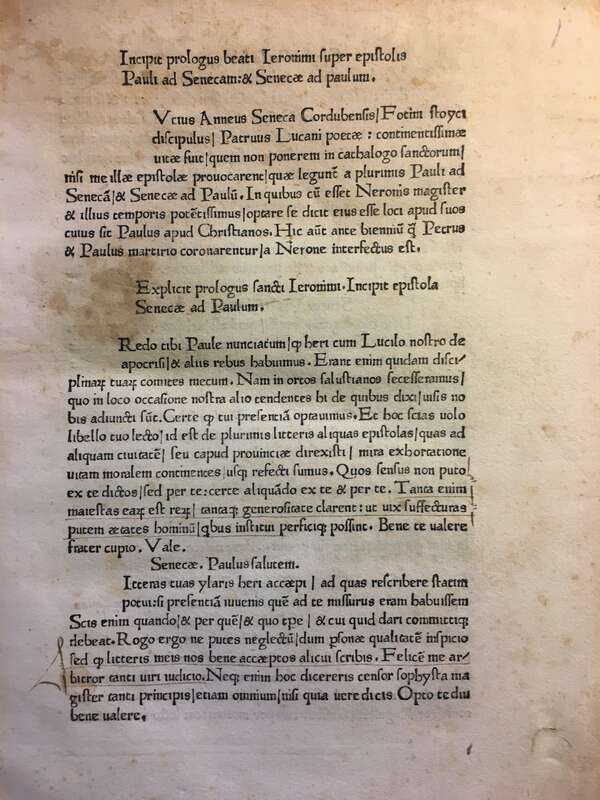 Incipit prologus beati Ieronimi super epistolis
Pauli ad Senecam:& Senecæ ad paulum.
Vcius Anneus Seneca Cordubensis/Fotim stoyci
discipulus/ Patruus Lucani poetæ : continentissimæ
uitæ fuit/quem non ponerem in cathalogo sanctorum/
nisi me illæ epistolæ prouocarent/quæ legunt̃ a plurimis Pauli ad
Senecã/& Senecæ ad Paulũ. In quibus cũ esset Neronis magister
& illius temporis potẽtissimus/optare se dicit eius esse loci apud suos
cuius sit Paulus apud Christianos. Hic aũt ante bienniũ q̃ Petrus
& Paulus martirio coronarentur/a Nerone interfectus est.
Explicit prologus sancti Ieronimi. Incipit epistola
Senecæ ad Paulum.
Redo tibi Paule nunciatum/ꝙ heri cum Lucilo nostro de
apocrisi/& aliis rebus habuimus. Erant enim quidam disci
plinaꝝ tuaꝝ comites mecum. Nam in ortos salustianos secesseramus/
quo in loco occasione nostra alio tendentes hi de quibus dixi/uisis no
bis adiuncti sũt. Certe ꝙ tui presentiã optauimus. Et hoc scias uolo
libello tuo lecto/ id est de plurimis litteris aliquas epistolas/quas ad
aliquam ciuitatẽ/ seu capud prouinciæ direxisti/ mira exhortatione
uitam moralem continentes/usq; refecti sumus. Quos sensus non puto
ex te dictos/sed per te: certe aliquãdo ex te & per te. Tanta enim
maiestas eaꝝ est reꝝ/ tantaq; generositate clarent: ut uix suffecturas
putem ætates hominũ/qbus institui perficiq; possint. Bene te ualere
frater cupio. Vale.
Senecæ. Paulus salutem.
Itteras tuas ylaris heri accæpi/ ad quas rescribere statim
potui:si presentiã iuuenis quẽ ad te missurus eram habuissem
Scis enim quando/& per quẽ/& quo tp̃e/ & cui quid dari committiq;
debeat. Rogo ergo ne putes neglectũ/dum p̃sonæ qualitatẽ inspicio
sed ꝙ litteris meis nos bene accæptos alicui scribis. Felicẽ me ar/
bitror tanti uiri iudicio. Neq; enim hoc dicereris censor sophysta ma
gister tanti principis/etiam omnium/nisi quia uere dicis Opto te diu
bene ualere.